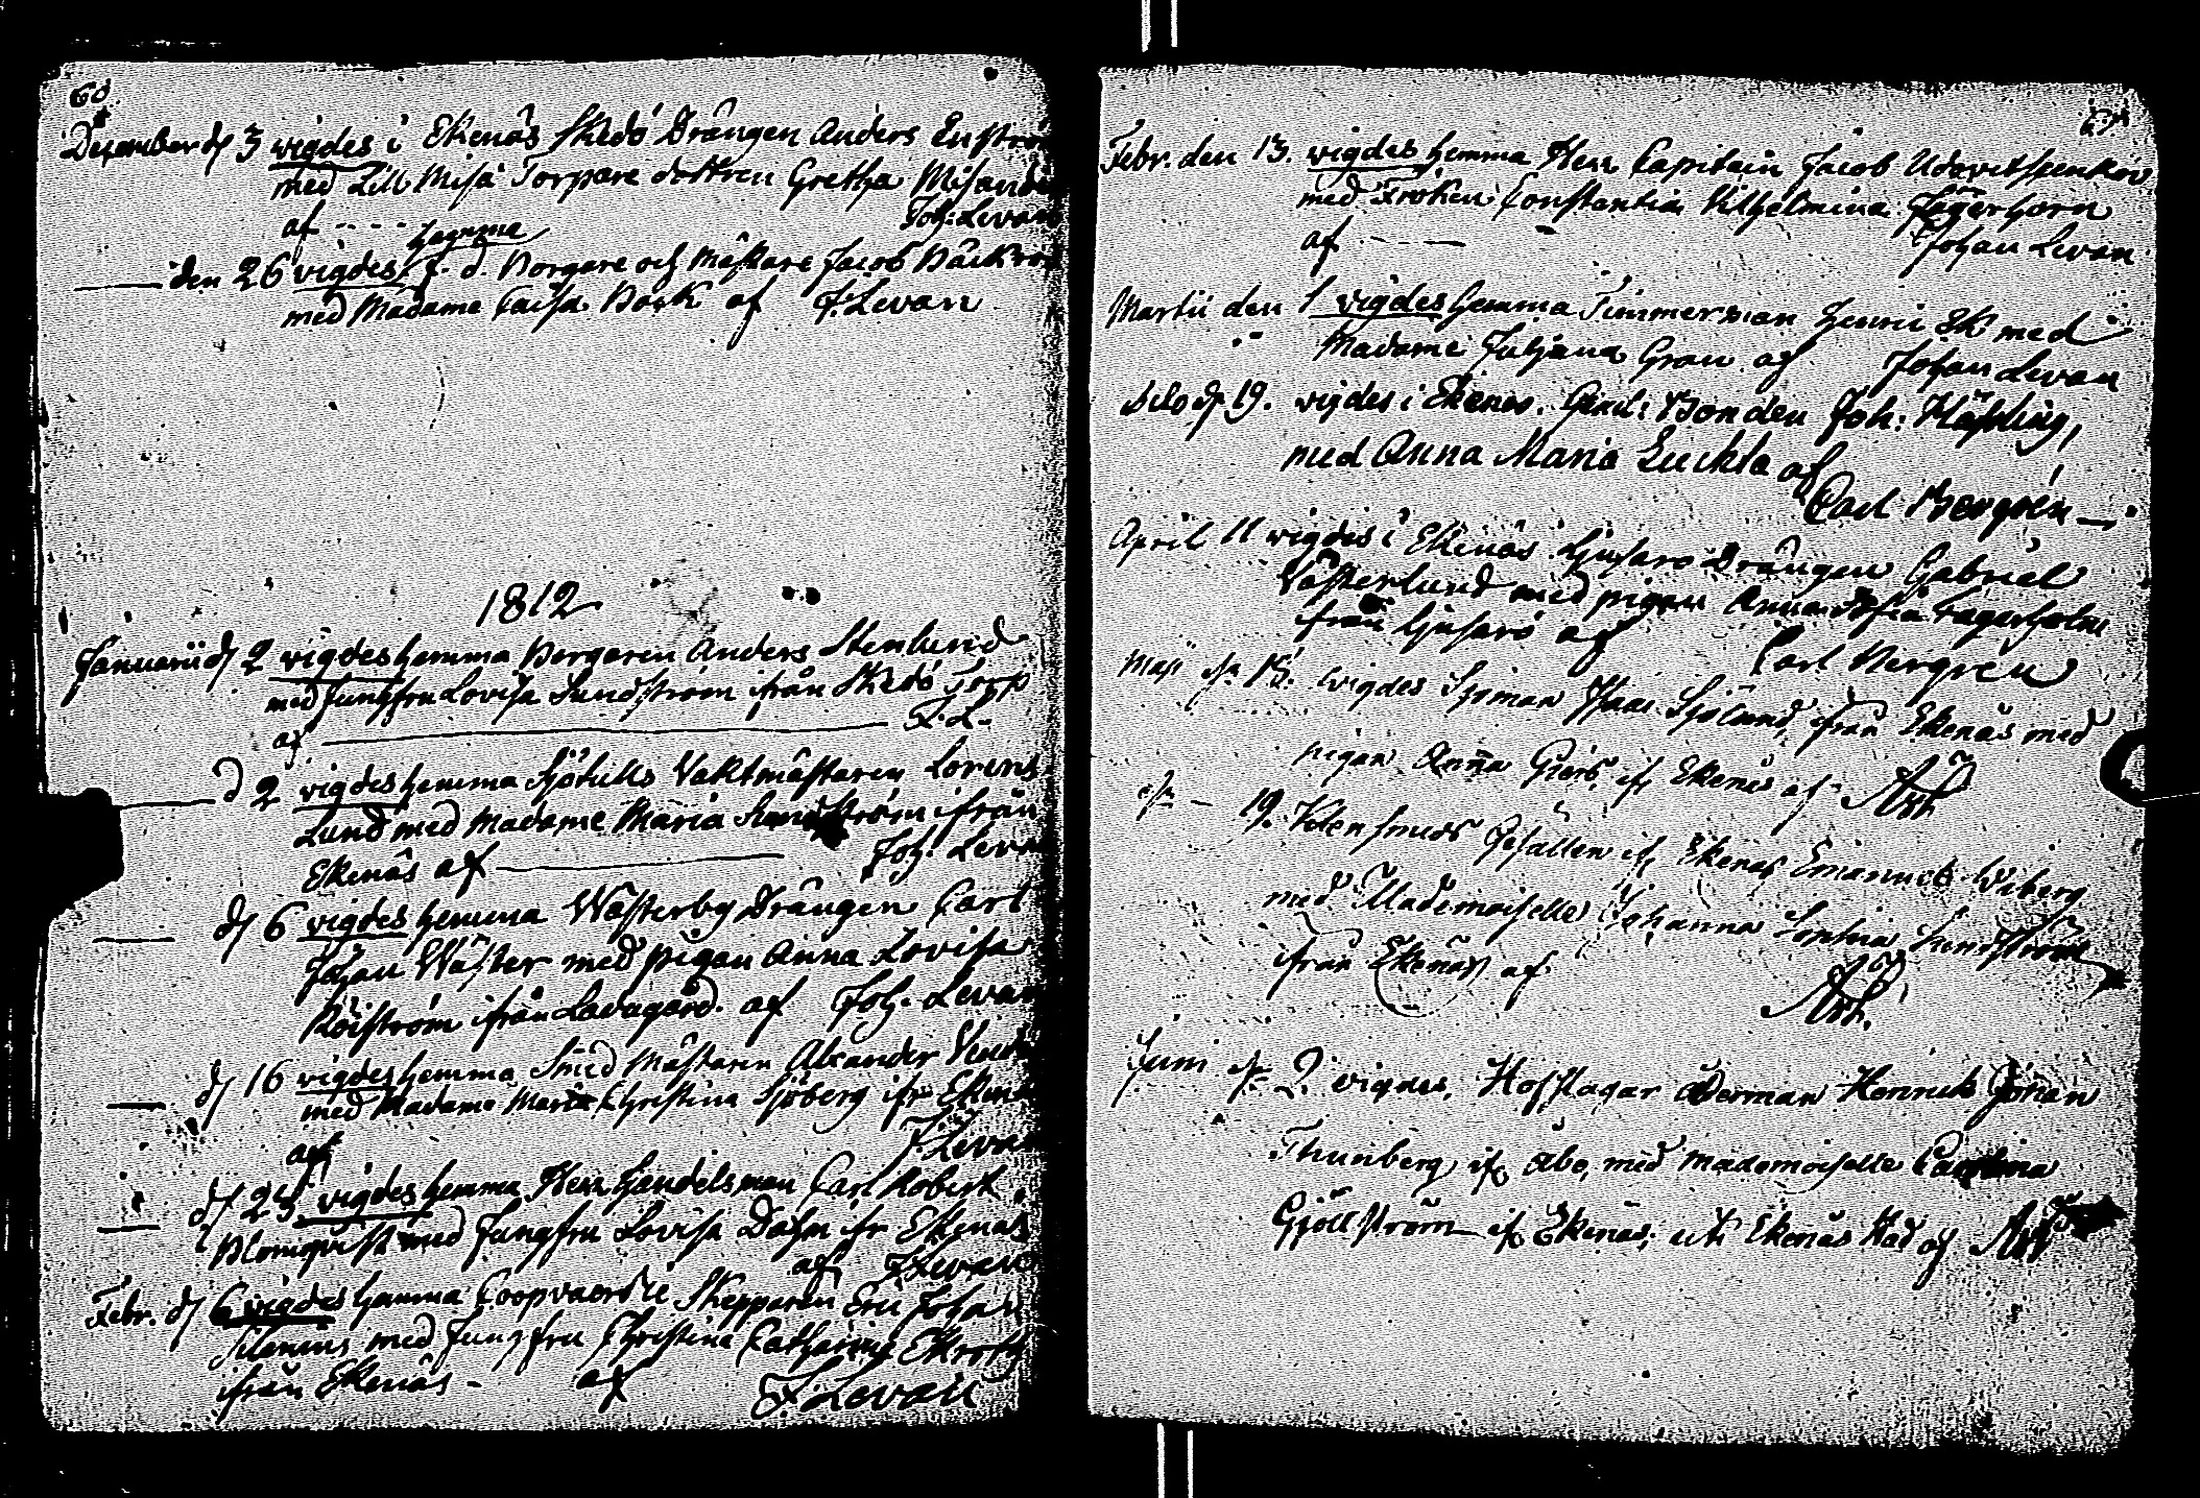 60.
December d 3 vigdes i Ekenäs Skedö Drängen Anders Enström
med Lill Misä Torpare dottren Gretha
af - - - - Joh: Levan
hemma
den 26 vigdes f. d. Borgare och Mästare Jacob
med Madame Caisa Bock af J: Levan
1812
Januarii d 2 vigdes hemma Borgaren Anders Stenlund
med Jungfru Lovisa Sundström ifrån Skedö Torp
af J. L.
d 2 vigdes hemma Sjötulls Vaktmästaren Lorens
Lund med Madame Maria ifrån
Ekenäs af Joh. Levan
d 6 vigdes hemma Wästerby Drängen Carl
Johan Wäster med pigan Anna Lovisa
ifrån Ladugård. af Joh. Levan
d 16 vigdes hemma Smed Mästaren Alexander
med Madame Maria Christina Sjöberg ifr Ekenäs
af J. Levan
d 25 vigdes hemma Herr Handelsman Carl Robert
Blomqvist med Jungfru Lovisa Dahn ifr Ekenäs
af J. Levan
Febr. d 6 vigdes hemma Coopvaerdie Skepparen Eric Johan
med Jungfru Christina Catharina Ekroth
ifrån Ekenäs - af J. Levan
Febr. den 13. vigdes hemma Herr Capitain Jacob
med Fröken Constantia Vilhelmina Jägerhorn
af - - - - Johan Levan
Martii den 1 vigdes hemma Timmerman Henric Ek med
Madame Juliana Gran af Johan Levan
dito d 19. vigdes i Ekenäs. Bonden Joh:
med Anna Maria af
Carl Bergrén
April 11 vigdes i Ekenäs Ljusarö Drängen Gabriel
Västerlund med pigan Anna Sofia Lagerholm
från Ljusarö af Carl Bergren
Maji d 15. wigdes Sjöman Isaac Sjölund, ifrån Ekenäs med
pigan Anna if Ekenäs af
d - 19. Klensmeds Gesällen if Ekenäs Emanuel Wiberg
med Mademoiselle Johanna Sophia Sundström
ifrån Ekenäs af
Juni d 2 vigdes, Hofslagar Ålderman Henrick Johan
Thunberg, if Åbo, med Mademoiselle Carolina
Gjöllström if Ekenäs, uti Ekenäs stad af